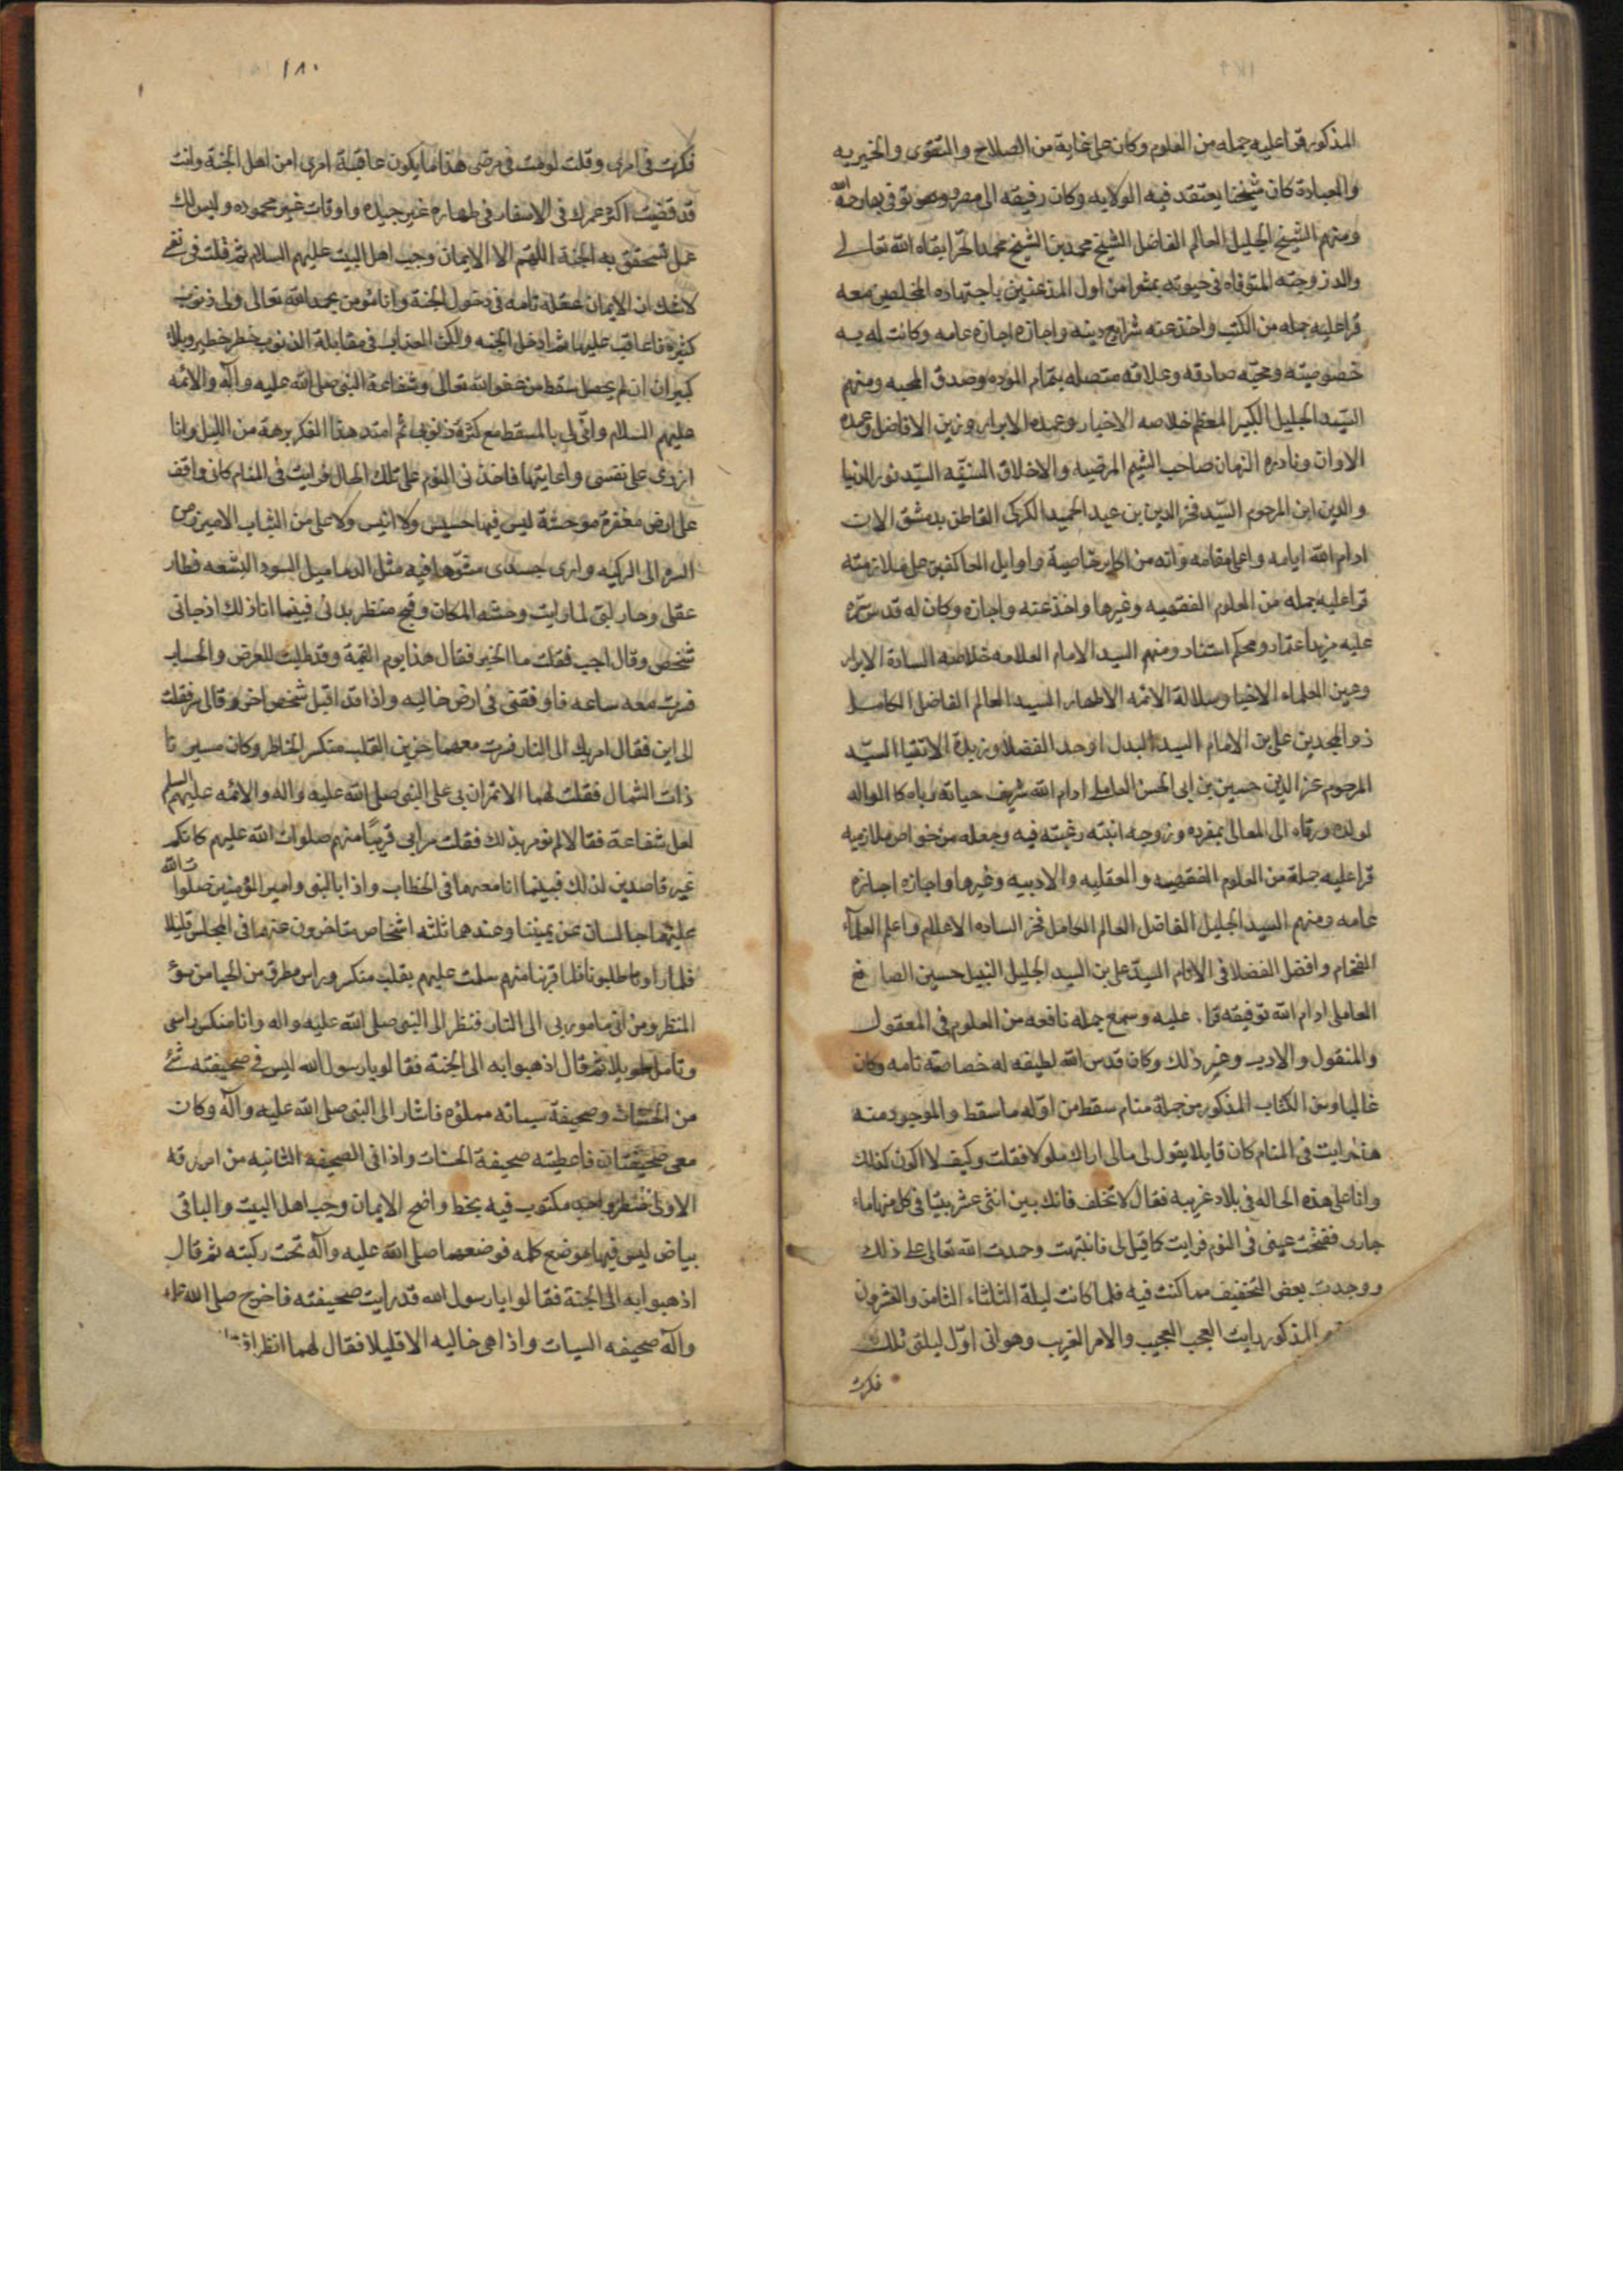 المذكور قرا عليه جمله من العلوم وكان على غاية من الصلاح والتقوى والخيريه
والعبادة كان شيخنا يعتقد فيه الولايه وكان رفيقه الى مصر وبها توفى رحمه الله
ومنهم الشيخ الجليل العالم الفاضل الشيخ محمد بن الشيخ محمد الحر ابقاه الله تعالى
والد زوجته المتوفاه فى حيوته بمشغرا من اول المذعنين باجتهاده المخلصين معه
قرا عليه جمله من الكتب واخذ عنه شرايع دينه واجازه اجازه عامه وكانت له به
خصوصيته ومحبه صادقه وعلاقه متصله بتمام الموده وصدق المحبه ومنهم
السيد الجليل الكبير المعظم خلاصه الاخيار وعمدة الابرار وزين الافاضل وعمدة
الاوان ونادره الزمان صاحب الشيم المرضيه والاخلاق السنيه السيد نور الدنيا
والدين ابن المرحوم السيد فخر الدين بن عبد الحميد الكركى القاطن بدمشق الان
ادام الله ايامه واعلى مقامه وانه من اكابر خاصيته واوايل العاكفين على ملازمته
قرا عليه جمله من العلوم الفقهيه وغيرها واخذ عنه واجازه وكان له قدس سره
عليه مزيد اعتماد ومحكم استناد ومنهم السيد الامام العلامه خلاصه السادة الابرار
وعين العلماء الاخيار وسلالة الائمه الاطهار السيد العالم الفاضل الكامل
ذو المجدين على بن الامام السيد البدل اوحد الفضلا وزبدة الاتقيا السيد
المرحوم عز الدين حسين بن ابى الحسن العاملى ادام الله شريف حياته رباه كالوالد
لولده ورقاه الى المعالى بمفرده وزوجه ابنته رغبته فيه وجعله من خواص ملازميه
قرا عليه جملة من العلوم الفقهيه والعقليه والادبيه وغيرها واجازه اجازه
عامه ومنهم السيد الجليل الفاضل العالم الكامل فخر الساده الاعلام واعلم العلماء
الفخام وافضل الفضلا فى الانام السيد على بن السيد الجليل النبيل حسين الصايغ
العاملى ادام الله توفيقه قرا عليه وسمع جمله نافعه من العلوم فى المعقول
والمنقول والادب وغير ذلك وكان قدس الله لطيفه له خصاصة تامه وكان
غالبا ومن الكتاب المذكور من جملة منام سقط من اوله ما سقط والموجود منه
هذا رايت فى المنام كان قايلا يقول لى مالى اراك ملولا فقلت وكيف لا اكون كذلك
وانا على هذه الحاله فى بلاد غريبه فقال لا تخف فانك بين اثنى عشر بيتا فى كل منها ماء
جارى ففتحت عينى فى النوم فرايت كما قيل لى فانتبهت وحمدت الله تعالى على ذلك
ووجدت بعض التخفيف مما كنت فيه فلما كانت ليلة الثلثاء الثامن والعشرون
المذكور رايت العجب العجيب والامر الغريب وهو انى اول ليلتى تلك
فكرت
١٨٠
فكرت فى امرى وقلت لو مت فى مرضى هذا ما يكون عاقبة امرى امن اهل الجنة وانت
قد قضيت اكثر عمرك فى الاسفار فى طهاره غير جيده واوقات غير محموده وليس لك
عمل تستحق به الجنة اللهم الا الايمان وحب اهل البيت عليهم السلام ثم قلت فى نفسى
لا شك ان الايمان علة تامه فى دخول الجنة وانا مؤمن بحمد الله تعالى ولى ذنوب
كثيرة فاعاقب عليها ثم ادخل الجنه ولكن العذاب فى مقابلة الذنوب خطر خطير وبلاء
كبير ان لم يحصل سقط من عفو الله تعالى وشفاعة النبى صلى الله عليه وآله والائمه
عليهم السلام وانى لى بالمسقط مع كثرة ذنوبى ثم امتد هذا الفكر برهة من الليل وانا
ازرى على نفسى واعاتبها فاخذنى النوم على تلك الحال فرايت فى المنام كانى واقف
على ارض مقفرة موحشة ليس فيها حسيس ولا انيس ولا على من الثياب الا ميزر من
السره الى الركبه وارى جسدى مشوها فيه مثل الدماميل السود البشعه فطار
عقلى وحار لبى لما رايت وحشه المكان وقبح منظر بدنى فبينما انا ذلك اذ جائى
شخص وقال اجب فقلت ما الخبر فقال هذا يوم القيمة وقد طلبت للعرض والحساب
فسرت معه ساعه فاوقفنى فى ارض خاليه واذا قد اقبل شخص اخر وقال سر فقلت
الى اين فقال امر بك الى النار فسرت معهما حزين القلب منكسر الخاطر وكان مسيرنا
ذات الشمال فقلت لهما الا تمران بى على النبى صلى الله عليه واله والائمه عليهم السلم
اهل شفاعة فقالا لم نومر بذلك فقلت مرا بى قريبا منهم صلوات الله عليهم كانكم
غير قاصدين لذلك فبينما انا معهما فى الخطاب واذا بالنبى وامير المؤمنين صلوات الله
عليهما جالسان عن يميننا وعندهما ثلثه اشخاص متاخرون عنهما فى المجلس قليلا
فلما راونا طلبونا فلما قربنا منهم سلمت عليهم بقلب منكسر وراس مطرق من الحيا من سوء
المنظر ومن انى مامور بى الى النار فنظر الى النبى صلى الله عليه واله وانا منكس راسى
وتامل طويلا ثم قال اذهبوا به الى الجنة فقالو يا رسول الله ليس فى صحيفته شئ
من الحسنات وصحيفة سيئاته مملوه فاشار الى النبى صلى الله عليه وآله وكان
معى صحيفتان فاعطيته صحيفة الحسنات واذا فى الصحيفه الثانيه من اس رقه
الاولى سطر واحد مكتوب فيه بخط واضح الايمان وحب اهل البيت والباقى
بياض ليس فيها موضع كلمه فوضعهما صلى الله عليه وآله تحت ركبته ثم قال
اذهبوا به الى الجنة فقالوا يا رسول الله قد رايت صحيفته فاخرج صلى الله عليه
وآله صحيفه السيات واذا هى خاليه الا قليلا فقال لهما انظرا